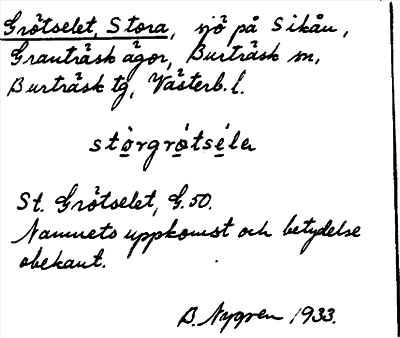 Grötselet, Stora, sjö på Sikån,
Granträsk ägor, Burträsk sn,
Burträsk tg, Västerb. l.
stòrgrótsélɘ
St. Grötselet, G.50.
Namnets uppkomst och betydelse
obekant.
B. Nygren 1933.